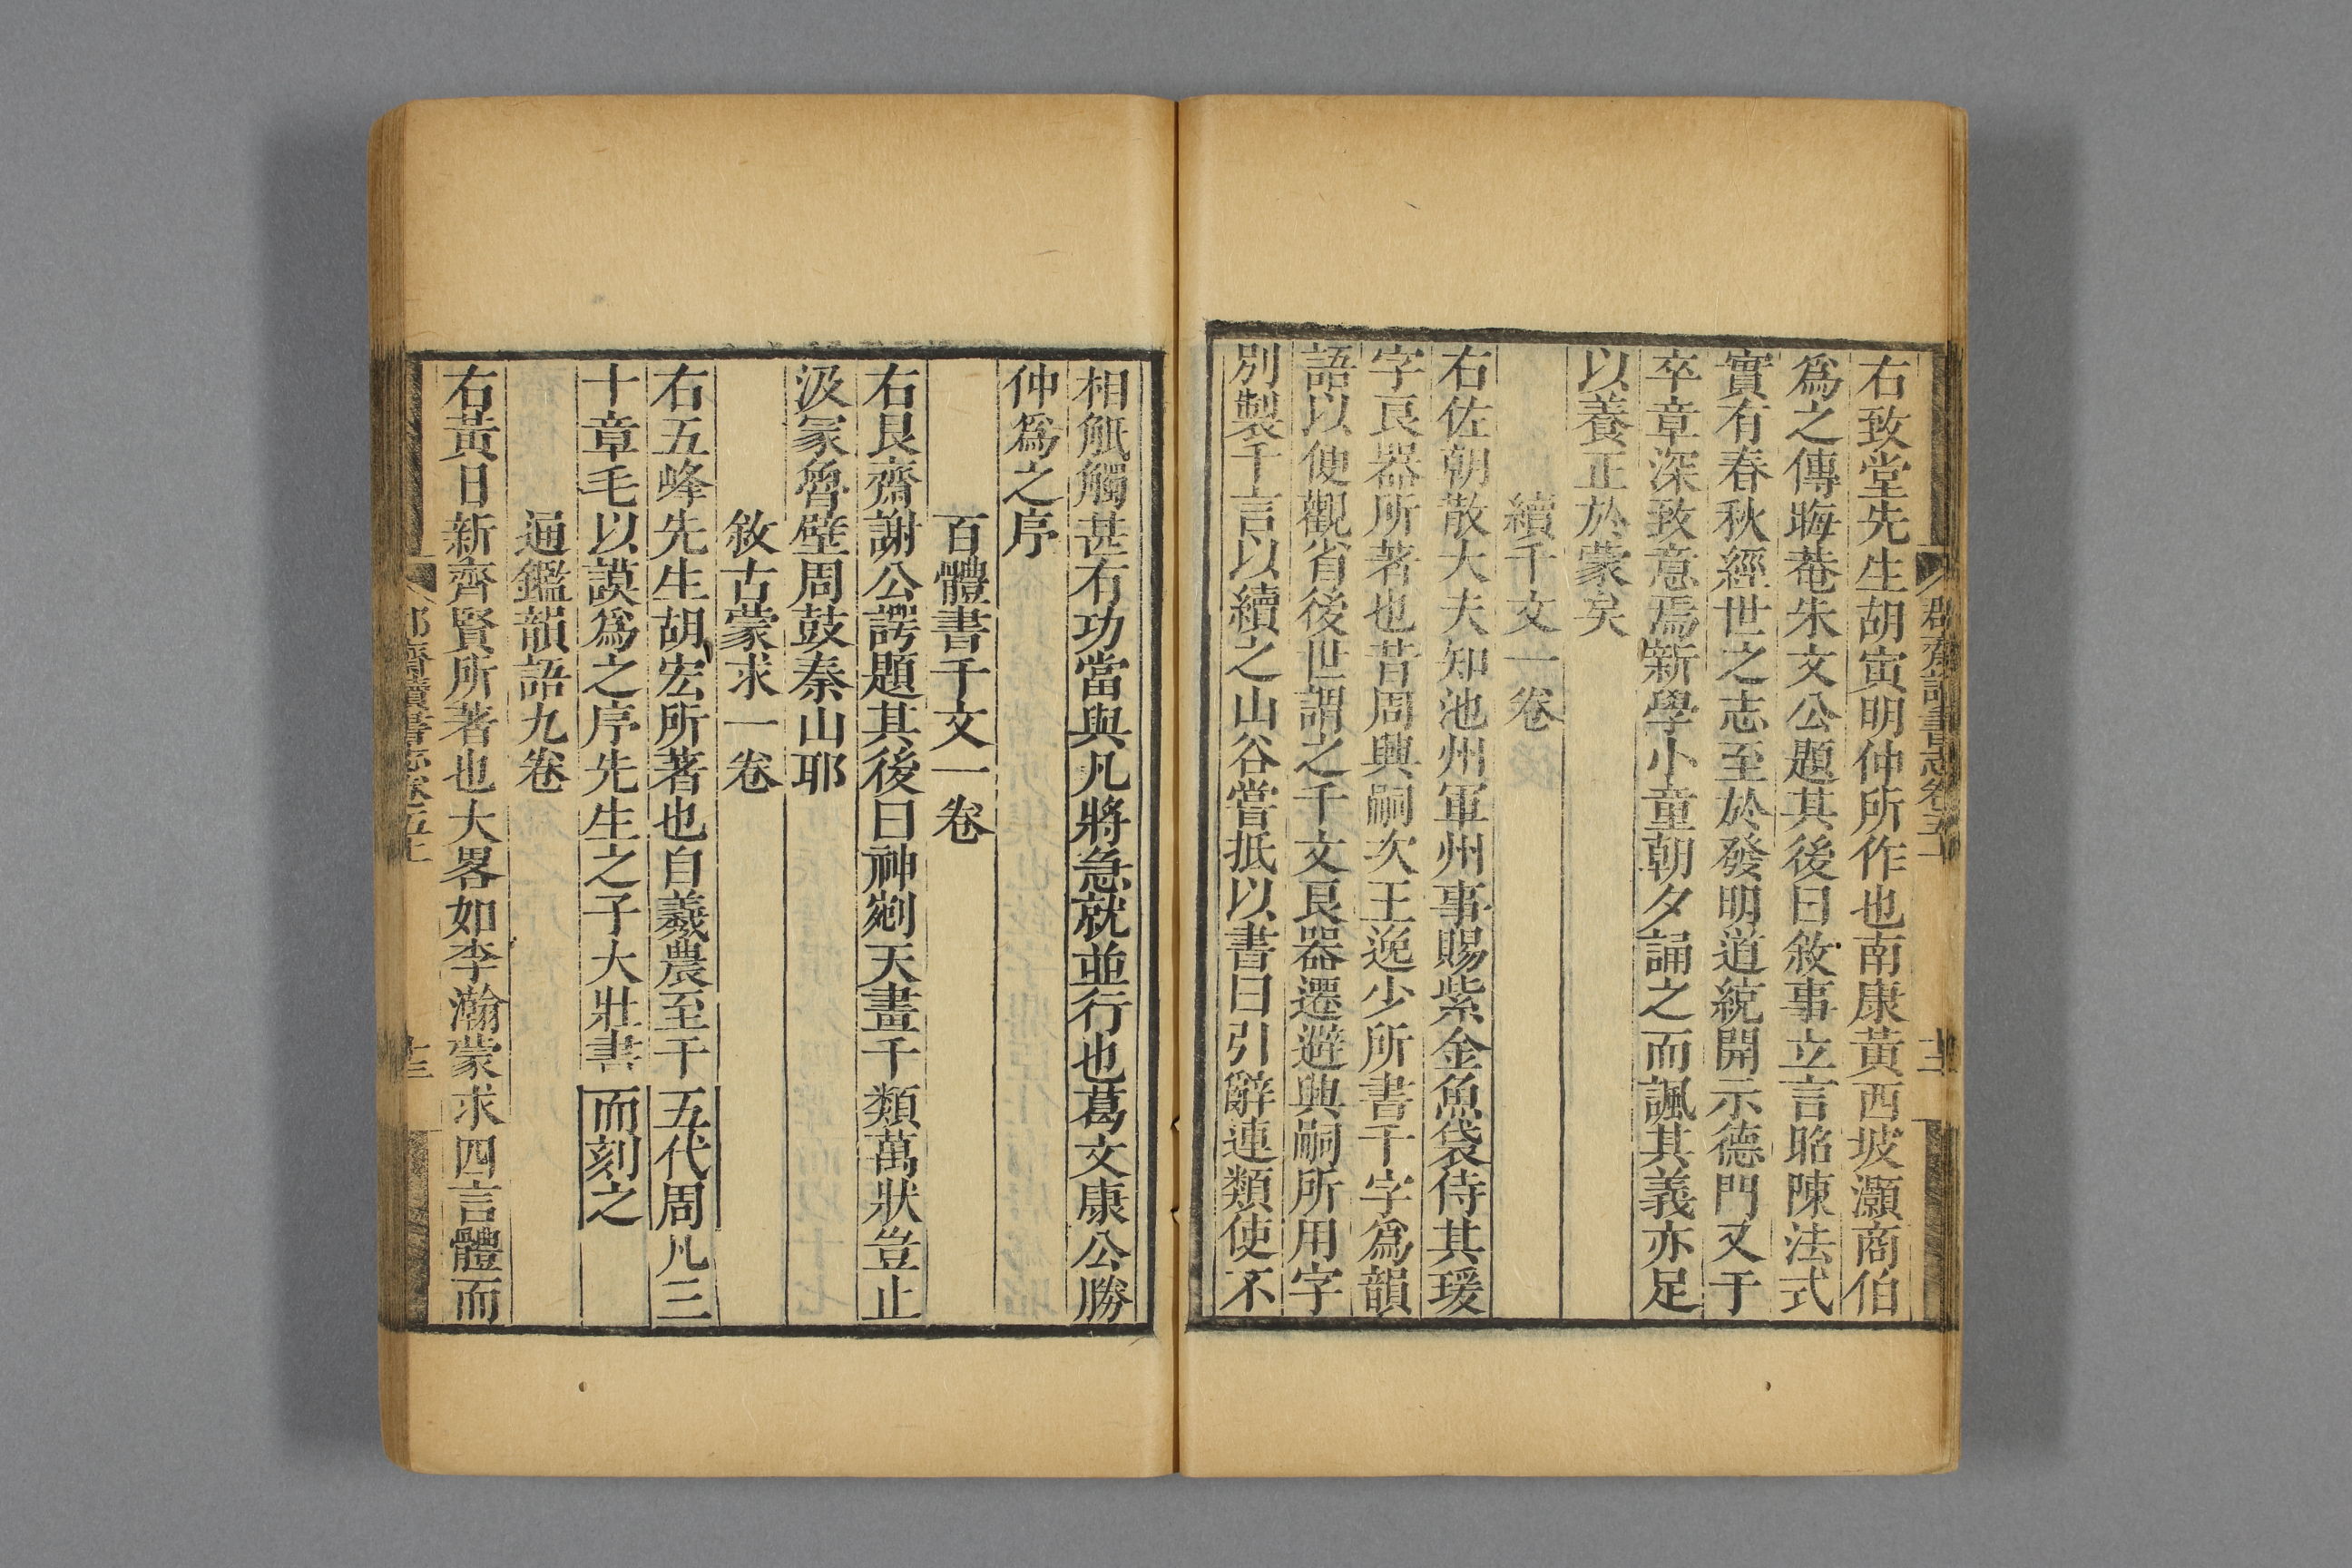 郡齋讀書志卷五上
十二
右致堂先生胡寅明仲所作也南康黃西坡灝商伯
爲之傳晦菴朱文公題其後曰敘事立言昭陳法式
實有春秋經世之志至於發明道統開示德門又于
卒章深致意焉新學小童朝夕誦之而諷其義亦足
以養正於蒙矣
續千文一卷
右佐朝散大夫知池州軍州事賜紫金魚袋侍其瑗
字良器所著也昔周興嗣次王逸少所書千字爲韻
語以便觀省後世謂之千文良器遷避興嗣所用字
別製千言以續之山谷嘗抵以書曰引辭連類使不
相觝觸甚有功當與凡將急就並行也葛文康公勝
仲爲之序
百體書千文一卷
右艮齋謝公諤題其後曰神剜天畫千類萬狀豈止
汲冢魯壁周鼓秦山耶
敘古蒙求一卷
右五峰先生胡宏所著也自羲農至于五代周凡三
十章毛以謨爲之序先生之子大壯書而刻之
通鑑韻語九卷
右黃日新齊賢所著也大畧如李瀚蒙求四言體而
郡齋讀書志卷五上
十三